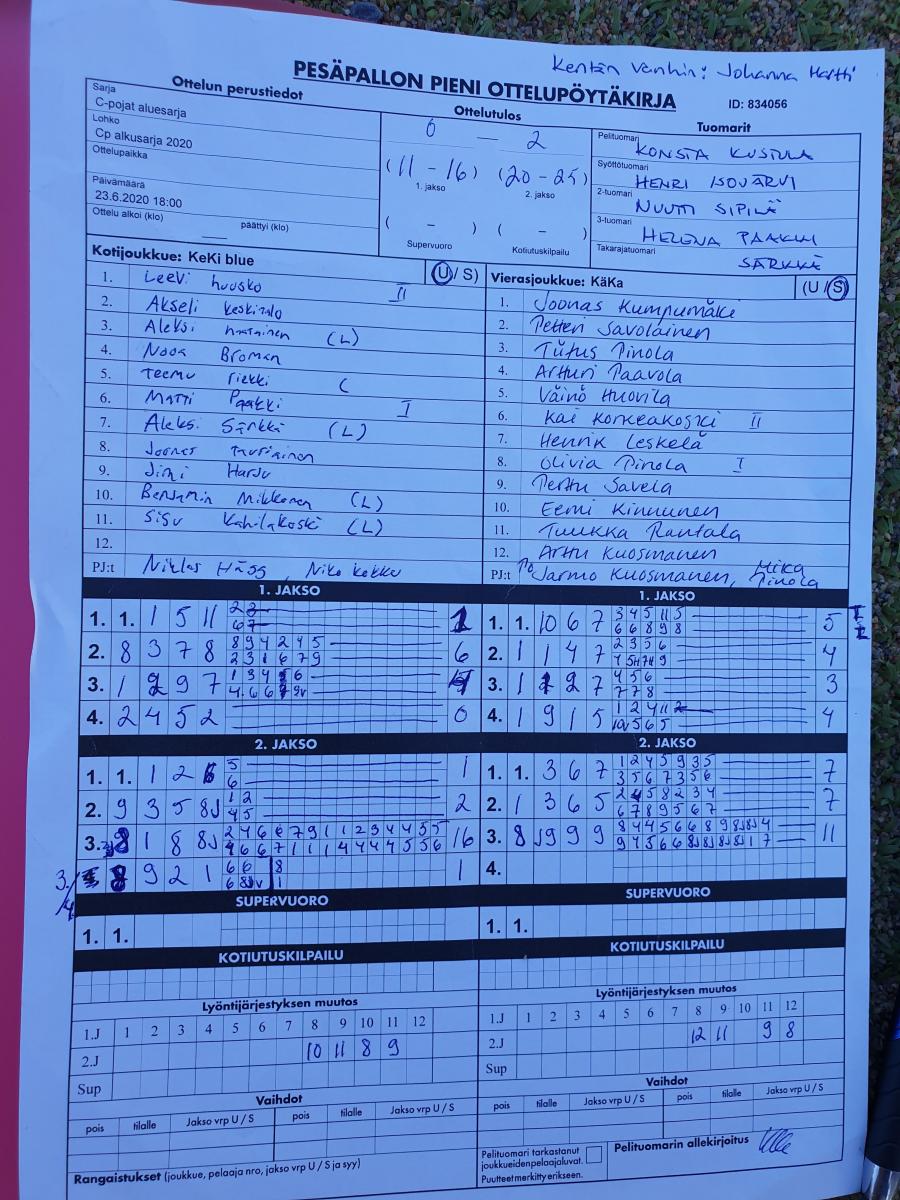 Kentän vanhin: Johanna Hartti
PESÄPALLON PIENI OTTELUPÖYTÄKIRJA
ID: 834056
Ottelun perustiedot
Sarja
C-pojat aluesarja
Lohko
Cp alkusarja 2020
Ottelupaikka
Päivämäärä
23.6.2020 18:00
Ottelu alkoi (klo) päättyi (klo)
Ottelutulos
0 - 2
(11 - 16) (20 - 25)
1. jakso 2. jakso
( - ) ( - )
Supervuoro Kotiutuskilpailu
Tuomarit
Pelituomari
KONSTA KUSTULA
Syöttötuomari
HENRI ISOJÄRVI
2-tuomari
NUUTTI SIPILÄ
3-tuomari
HELENA PAAKKI
Takarajatuomari
SÄRKKÄ
Kotijoukkue: KeKi blue (U/ S)
1. Leevi Huusko II
2. Akseli Keskitalo
3. Aleksi (L)
4. Nooa Broman
5. Teemu Riekki
6. Matti Paakki I
7. Aleksi Särkkä (L)
8. Joonas
9. Jimi Harju
10. Benjamin Mikkonen (L)
11. Sisu Kahilakoski (L)
12.
PJ:t Niklas Hägg, Niko Kokko
Vierasjoukkue: KäKa (U /S)
1. Joonas Kumpumäki
2. Petteri Savolainen
3. Tiitus Pinola
4. Artturi Paavola
5. Väinö Huovila
6. Kai Korkeakoski II
7. Henrik Leskelä
8. Olivia Pinola I
9. Perttu Savela
10. Eemi Kinnunen
11. Tuukka Rantala
12. Arttu Kuosmanen
PJ:t Jarmo Kuosmanen, Mika Pinola
1. JAKSO
1. 1. 1 5 11
2. 8 3 7 8
8 9 4 2 4 5
2 3 1 6 7 9
6
3. 1 2 9 7
4. 2 4 5 2 0
1. JAKSO
1. 1. 10 6 7
3 4 5 11 5
6 6 8 9 8
5
2. 1 1 4 7
2 3 5 6
4
3. 1 2 7
4 5 6
7 7 8
3
4. 1 9 1 5
4
2. JAKSO
1. 1. 1 2 6
5
6
1
2. 9 3 5 8J
1 2
4 5
2
3. 1 8 8J
2 4 6 6 7 9 1 1 2 3 4 4 5 5
4 6 6 7 1 1 1 4 4 4 4 5 5 6
16
3./4. 8 9 2 1
1
2. JAKSO
1. 1. 3 6 7
1 2 4 5 9 3 5
3 5 6 7 3 5 6
7
2. 1 3 6 5
2 4 5 8 2 3 4
6 7 8 9 5 6 7
7
3. 8 J9 9 9
11
4.
SUPERVUORO
1. 1.
SUPERVUORO
1. 1.
KOTIUTUSKILPAILU
KOTIUTUSKILPAILU
Lyöntijärjestyksen muutos
1.J 1 2 3 4 5 6 7 8 9 10 11 12
2.J 10 11 8 9
Sup
Lyöntijärjestyksen muutos
1.J 1 2 3 4 5 6 7 8 9 10 11 12
2.J 12 11 9 8
Sup
Vaihdot
pois tilalle Jakso vrp U / S pois tilalle Jakso vrp U / S
Vaihdot
pois tilalle Jakso vrp U / S pois tilalle Jakso vrp U / S
Rangaistukset (joukkue, pelaaja nro, jakso vrp U / S ja syy)
Pelituomari tarkastanut
joukkueidenpelaajaluvat.
Puutteet merkitty erikseen.
Pelituomarin allekirjoitus